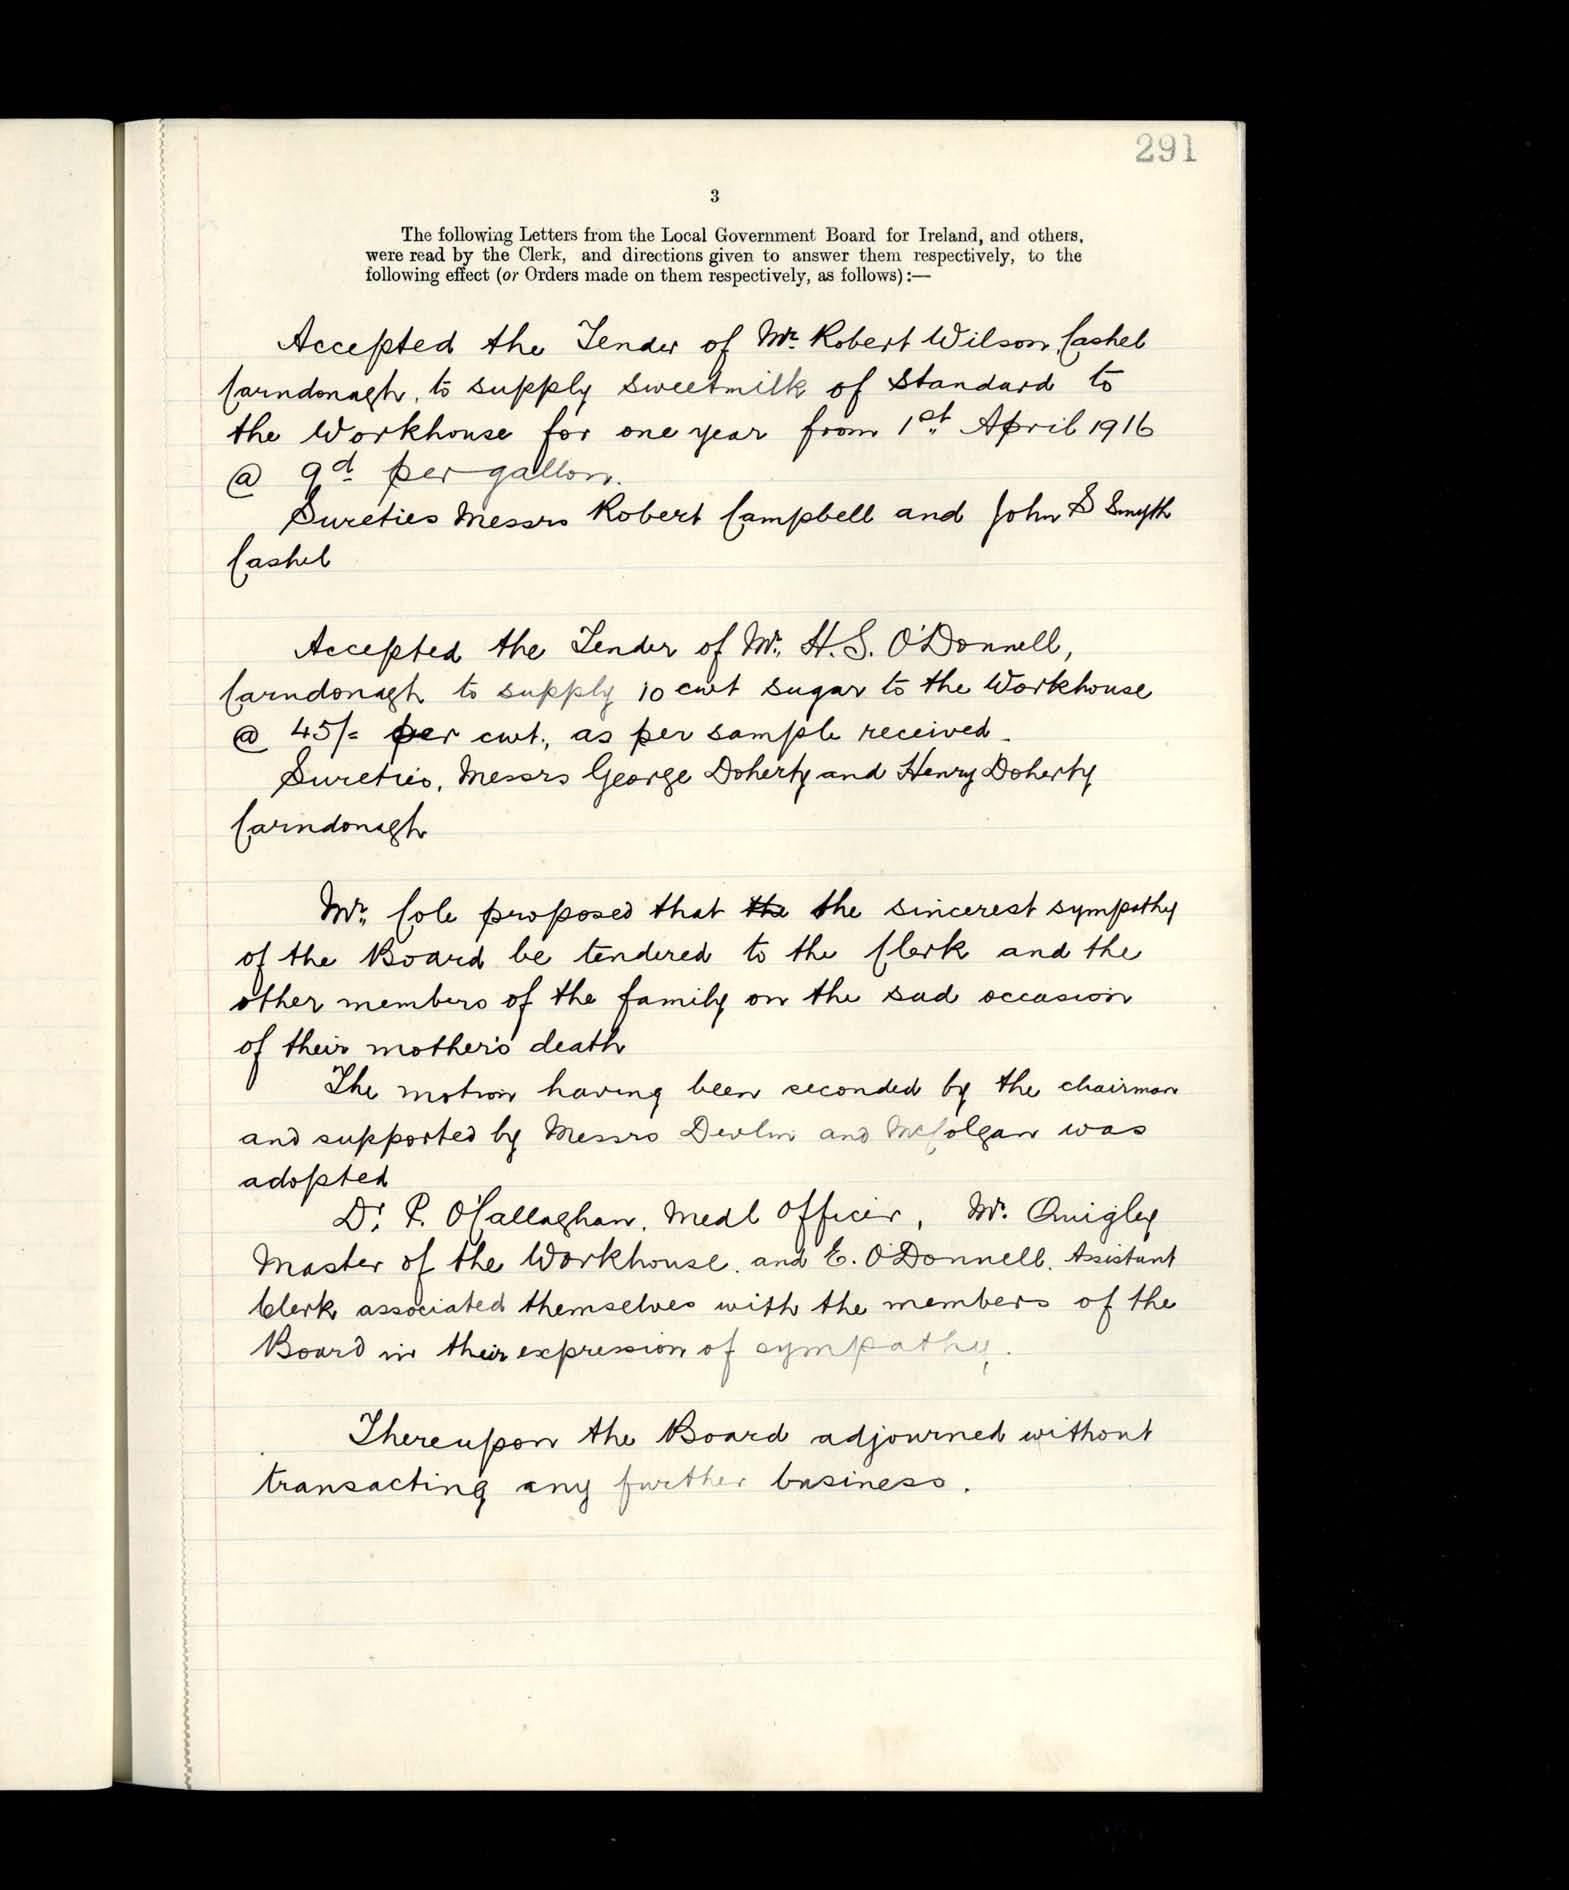 291
3
The following Letters from the Local Government Board for Ireland, and others,
were read by the Clerk, and directions given to answer them respectively, to the
following effect (or Orders made on them respectively, as follows):—
Accepted the Tender of Mr. Robert Wilson, Cashel
Carndonagh, to supply sweetmilk of Standard to
the Workhouse for one year from 1st April 1916
@ 9d per gallon.
Sureties Messrs Robert Campbell and John S Smyth
Cashel
Accepted the Tender of Mr. H.S. O'Donnell,
Carndonagh to supply 10 cwt sugar to the Workhouse
@ 45/= per cwt., as per sample received.
Sureties, Messrs George Doherty and Henry Doherty
Carndonagh
Mr. Cole proposed that the the sincerest sympathy
of the Board be tendered to the Clerk and the
other members of the family on the sad occasion
of their mother's death
The motion having been seconded by the chairman
and supported by Messrs Devlin and McColgan was
adopted
Dr. P. O'Callaghan, Medl Officer, Mr. Quigley
Master of the Workhouse, and E. O'Donnell, Assistant
Clerk associated themselves with the members of the
Board in their expression of sympathy.
Thereupon the Board adjourned without
transacting any further business.